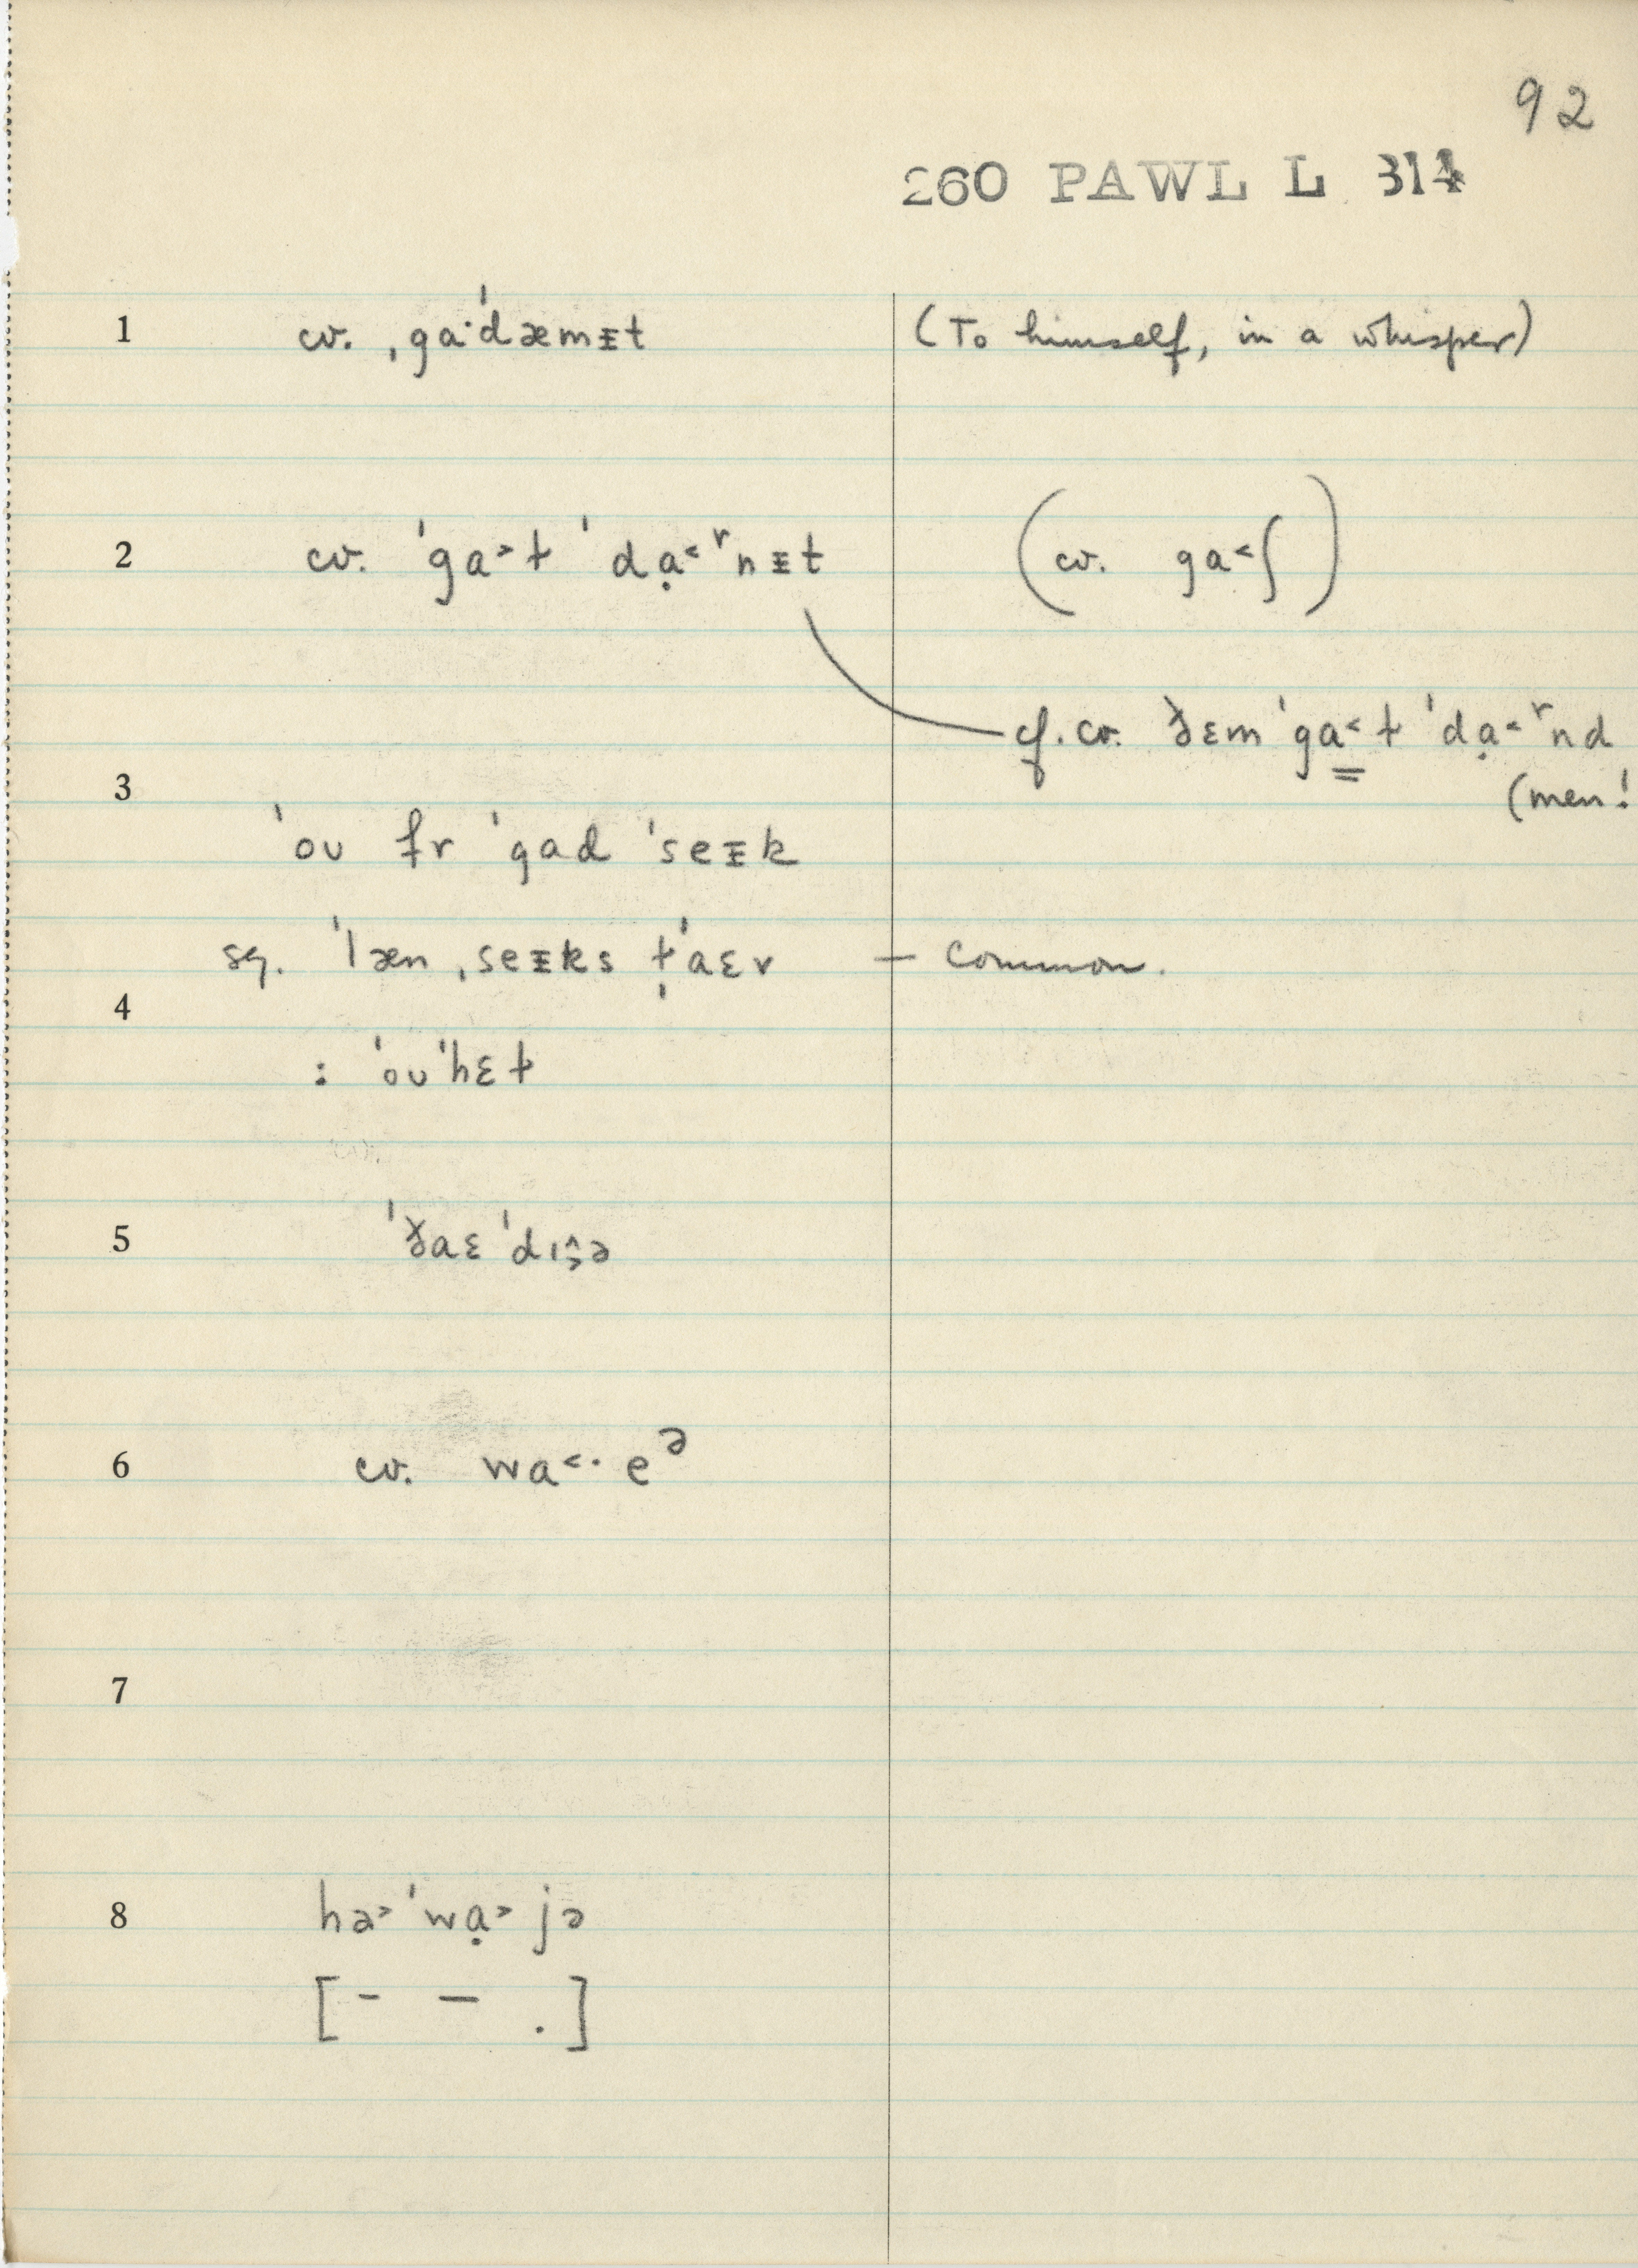 92
260 PAWL L 314
1 cv. ˌgaˑˈdæmᵻt (To himself, in a whisper)
2 cv. ˈga˃t̬ ˈdạ˂ʳnᵻt (cv. ga˂ʃ)
cf. cv. ðɛm ˈga˂t̬ ˈdạ˂ʳnd
(men!
3
ˈoʊ fr ˈgad ˈseᵻk
sg. ˈlæn ˌseᵻks t̬ˈaɛr – common.
4
: ˈoʊˈhɛt̬
5 ˈðaɛ ˈdɪŝ̬ə
6 cv. wa˂· eᵊ
7
8 hə˃ ˈwạ˃ jə
[ - – . ]